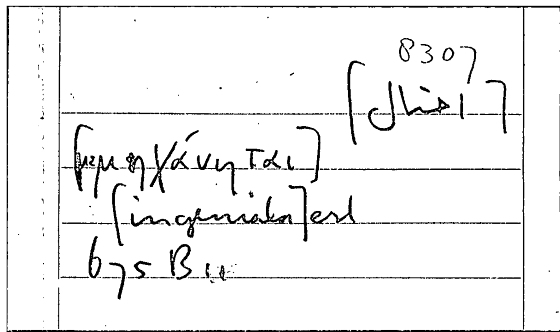 8307
[احتال]
[μεμηχάνηται]
[ingeniata] est
675 B 11